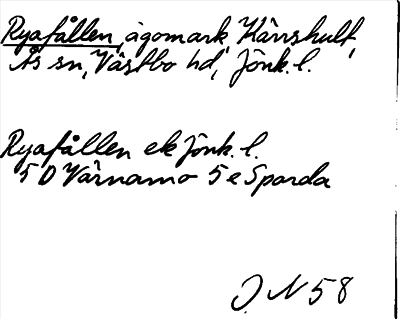 Ryafållen, ägomark, Härshult,
Ås sn, Västbo hd, Jönk. l.
Ryafållen ek Jönk. l.
5 D Värnamo 5 e Sparda
J. N 58